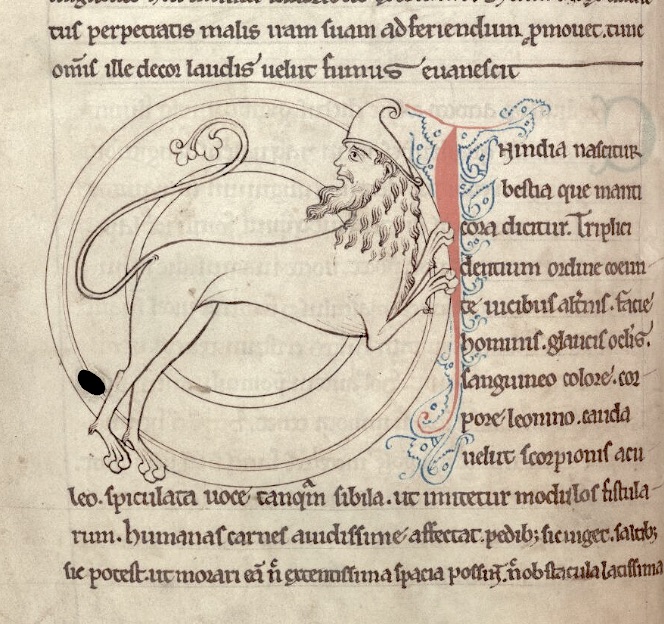 tus perpetratis malis iram suam ad feriendum ꝓmouet. tunc
om̄is ille decor laudis uelut fumus euanescit
In india nascitur
bestia que manti
cora dicitur. Triplici
dentium ordine coeun
te uicibus alt̄nis. facie
hominis. glaucis oc̄lis.
sanguineo colore. cor
pore leonino. cauda
uelut scorpionis acu
leo. spiculata uoce tanq̄m sibila. ut imitetur modulos fistula
rum. humanas carnes auidissime affectat. pedib; sic uiget. saltib;
sic potest. ut morari eā n̄ extentissima spacia possīt. n̄ obstacula latissima